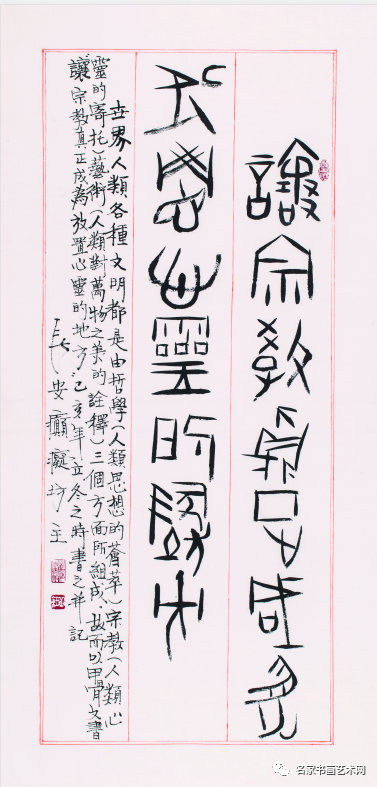 讓宗教真正成為
放置心靈的地方
世界人類各種文明都是由哲學(人類思想的薈萃)宗教(人類心
靈的寄托)藝術(人類對萬物之美的詮釋)三個方面所組成、故而以甲骨文書
"讓宗教真正成為放置心靈的地方"己亥年立冬之時書之并記
長安癲癡坊主
名家书画艺术网